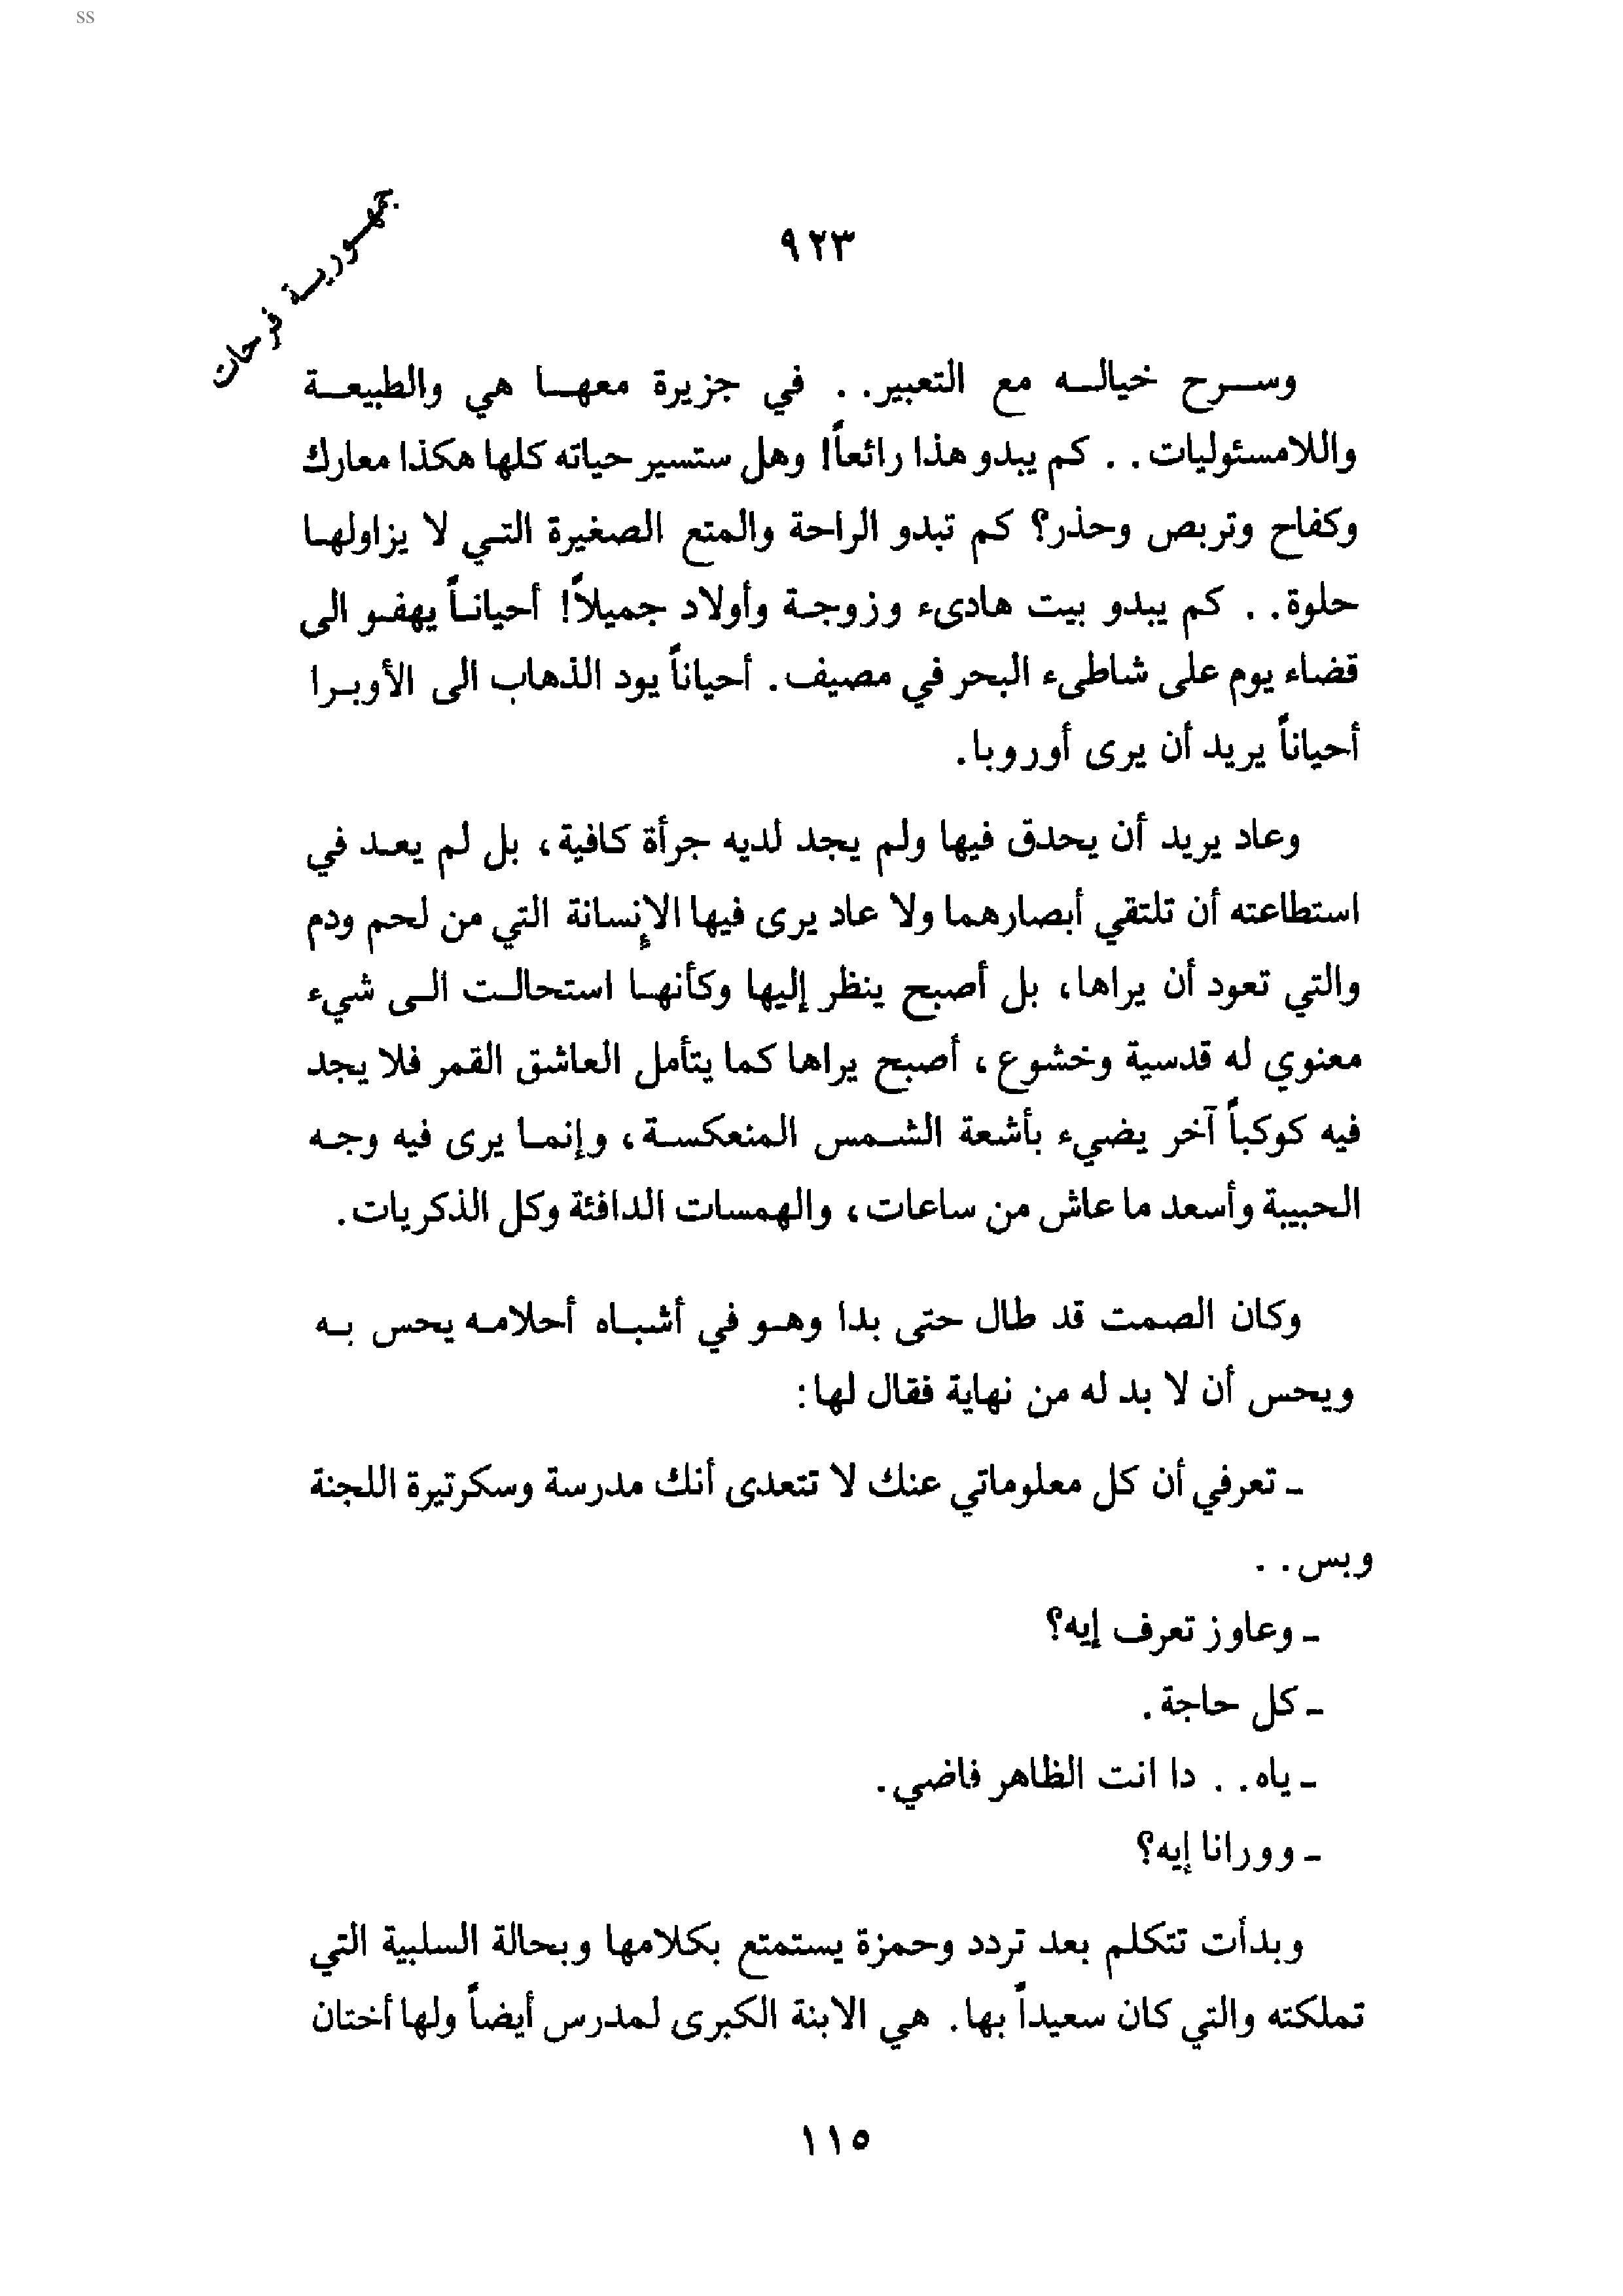 ss
٩٢٣
جمهورية فرحات
وسرح خياله مع التعبير . . في جزيرة معها هي والطبيعة
واللامسئوليات . . كم يبدو هذا رائعاً! وهل ستسير حياته كلها هكذا معارك
وكفاح وتربص وحذر؟ كم تبدو الراحة والمتع الصغيرة التي لا يزاولها
حلوة . . كم يبدو بيت هادىء وزوجة وأولاد جميلاً! أحياناً يهفو الى
قضاء يوم على شاطىء البحر في مصيف. أحياناً يود الذهاب الى الأوبرا
أحياناً يريد أن يرى أوروبا.
وعاد يريد أن يحدق فيها ولم يجد لديه جرأة كافية، بل لم يعد في
استطاعته أن تلتقي أبصارهما ولا عاد يرى فيها الإنسانة التي من لحم ودم
والتي تعود أن يراها، بل أصبح ينظر إليها وكأنها استحالت الى شيء
معنوي له قدسية وخشوع، أصبح يراها كما يتأمل العاشق القمر فلا يجد
فيه كوكباً آخر يضيء بأشعة الشمس المنعكسة، وإنما يرى فيه وجه
الحبيبة وأسعد ما عاش من ساعات، والهمسات الدافئة وكل الذكريات.
وكان الصمت قد طال حتى بدا وهو في أشباه أحلامه يحس به
ويحس أن لا بد له من نهاية فقال لها:
- تعرفي أن كل معلوماتي عنك لا تتعدى أنك مدرسة وسكرتيرة اللجنة
وبس . .
- وعاوز تعرف إيه؟
- كل حاجة.
- ياه . . دا انت الظاهر فاضي.
- وورانا إيه؟
وبدأت تتكلم بعد تردد وحمزة يستمتع بكلامها وبحالة السلبية التي
تملكته والتي كان سعيداً بها. هي الابنة الكبرى لمدرس أيضاً ولها أختان
١١٥